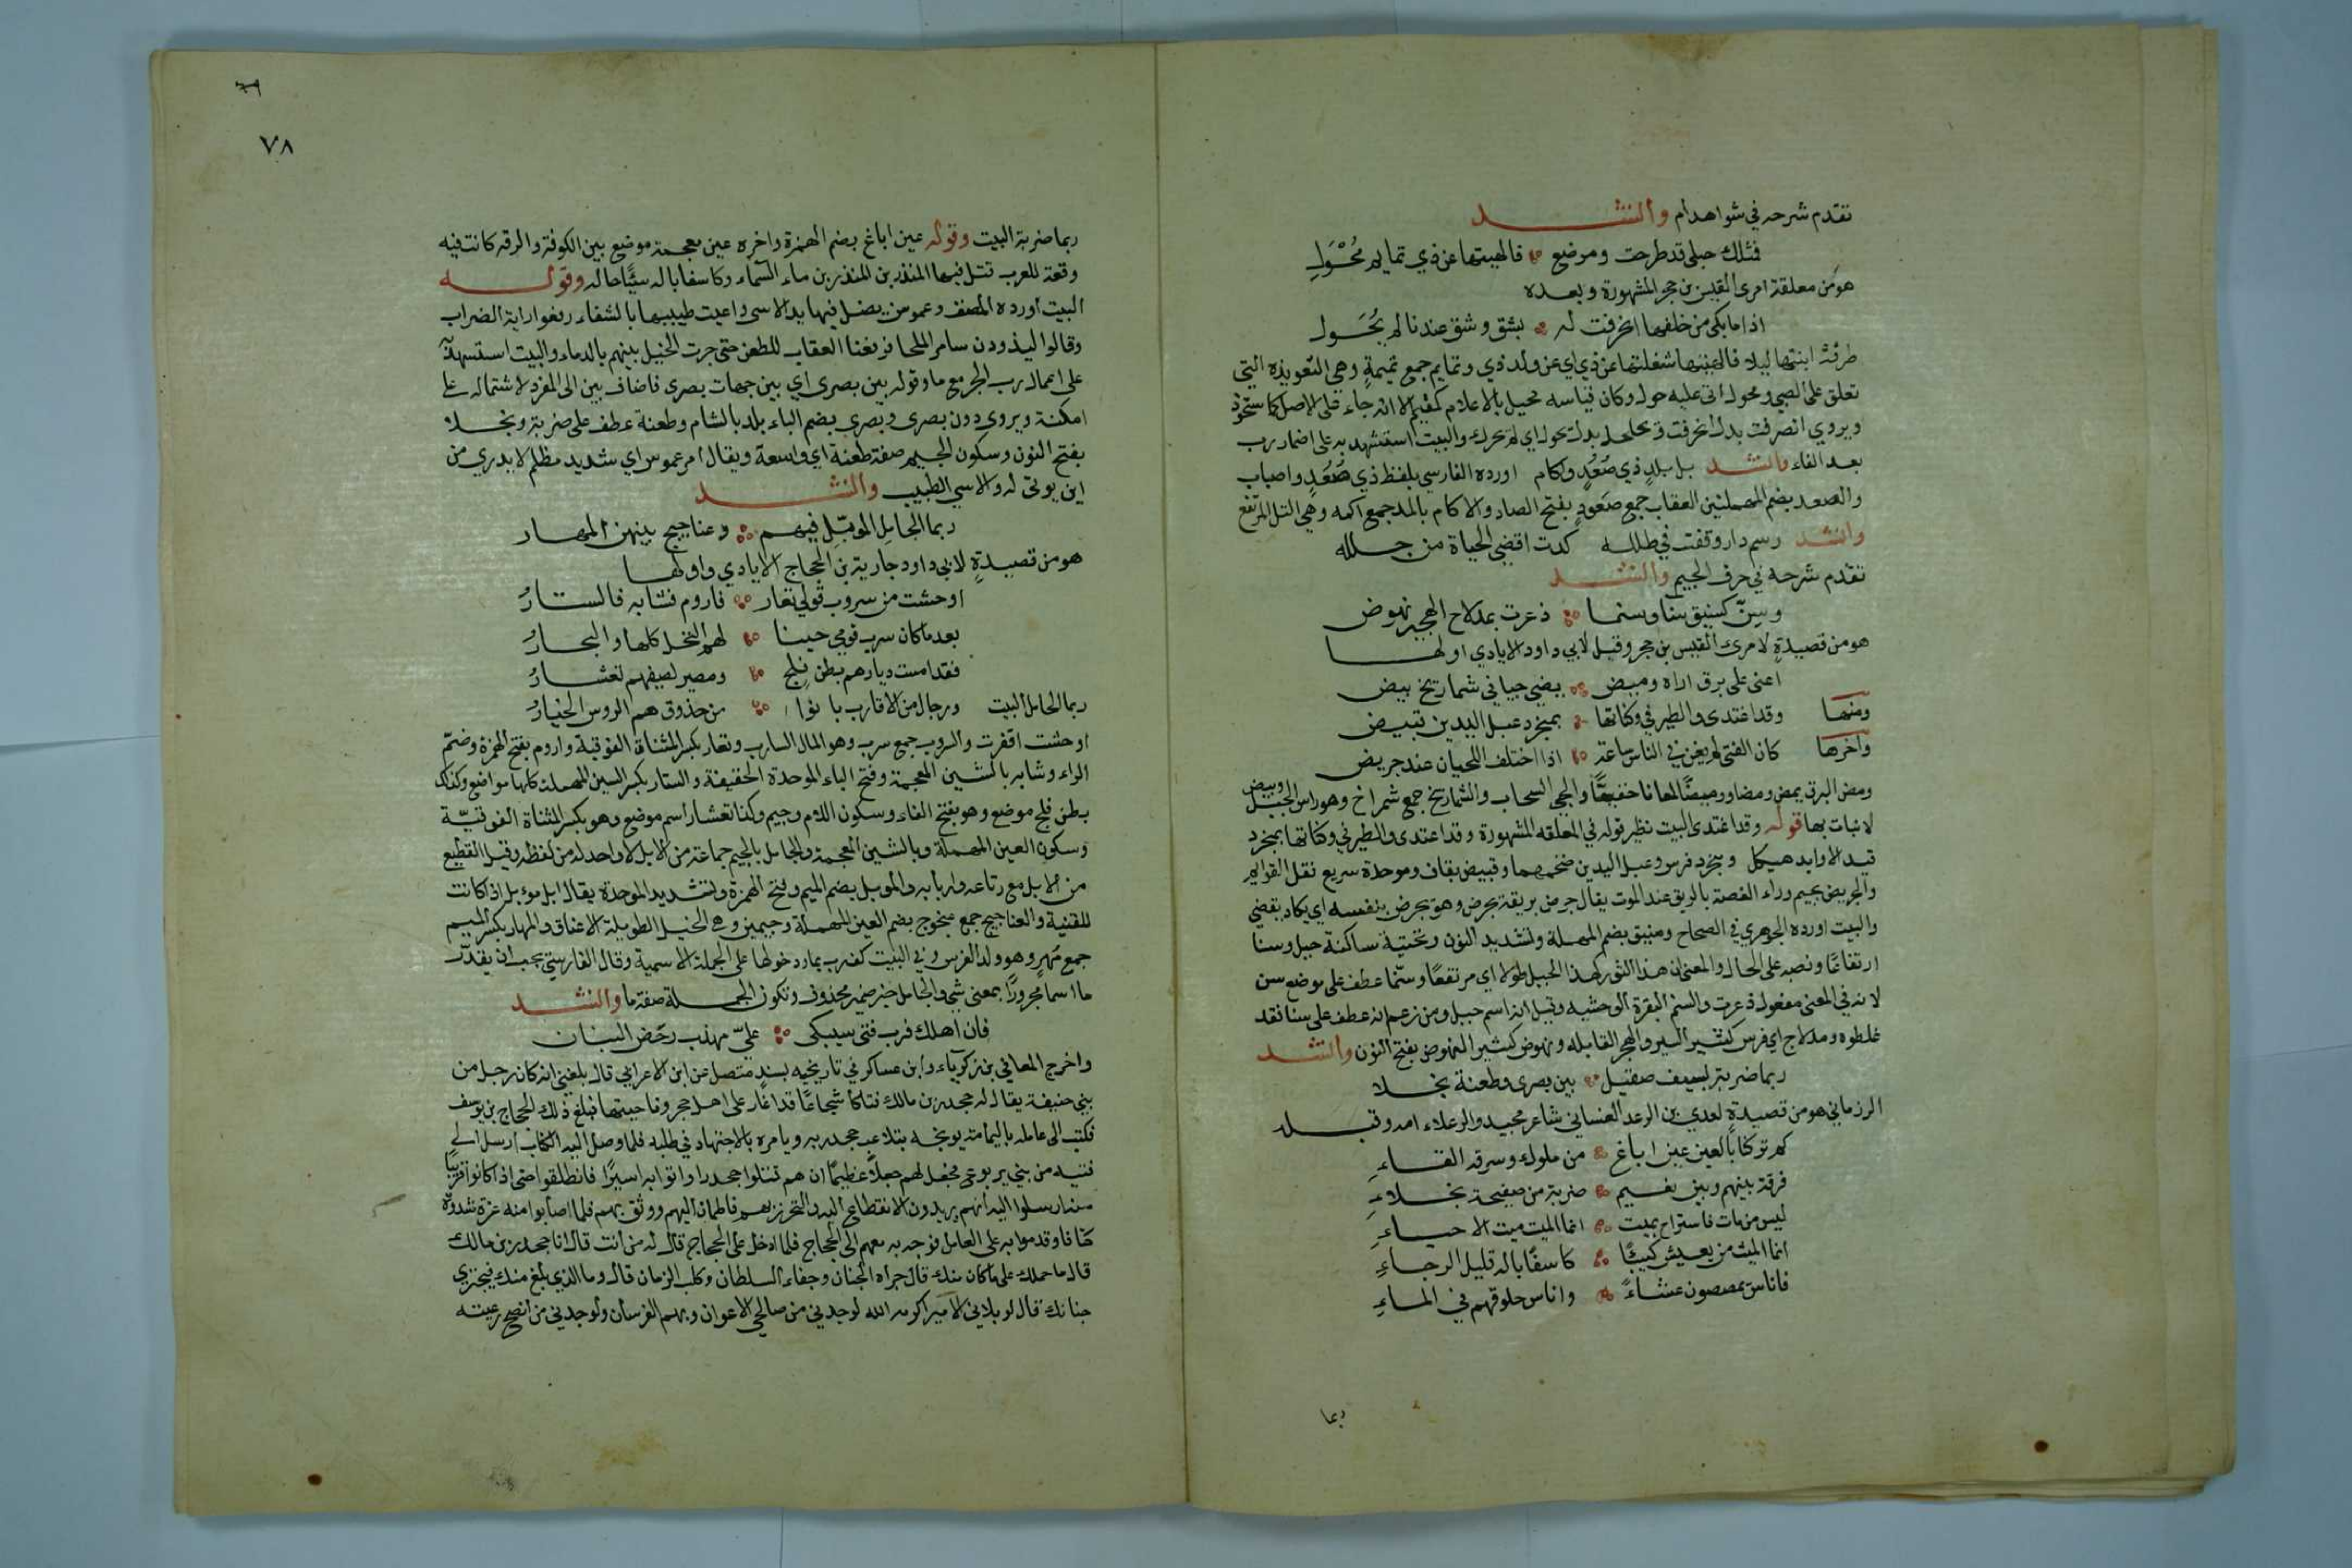 تقدم شرحه في شواهد ام وأنشد
فمثلك حبلى قد طرحت ومرضع فالهيتها عن ذي تمايم مُحْوَلِ
هو من معلقة امرئ القيس بن حجر المشهورة وبعده
اذا ما بكى من خلفها انحرفت له بشق وشق عندنا لم يُحَوَّلِ
طرقتُ اتيتها ليلا فالهيتها شغلتها عن ذي اي عن ولد ذي وتمايم جمع تميمةٍ وهي التعويذة التي
تعلق على الصبي ومحول اتى عليه حول وكان قياسه محيل بالاعلام كمقيم الا انه جاء على الاصل كاستحوذ
ويروي انصرفت بدل انحرفت بدل تحول اي لم تحرك والبيت استشهد به على اضمار رب
بعد الفاء وانشد بل بلدٍ ذي صُعُدٍ واكام اورده الفارسي بلفظ ذي صُعُدٍ واصباب
والصعد بضم المهملتين العقاب جمع صَعودٍ بفتح الصاد والاكام بالمد جمع اكمه وهي التل المرتفع
وانشد رسم دار وقفت في طلله كدت اقضي الحياة من جلله
تقدم شرحه في حرف الجيم وانشد
وسِنّ كسنيق سناء وسنما ذعرت بمدلاج الهجير نهوض
هو من قصيدةٍ لامرئ القيس بن حجر وقيل لابي داود الايادي اولها
اعنى على برق اراه وميض يضي حبيا في شماريخ بيض
ومنها وقد اغتدى والطير في وكناتها بمنجرد عبل اليدين قبيض
واخرها كان الفتى لم يغن في الناس ساعة اذا اختلف اللحيان عند جريض
ومض البرق يمض ومضا ووميضًا لمعانا خفيفًا والحبى السحاب والشماريخ جمع شمراخ وهو راس الجبل وبيض
لا نبات بها قوله وقد اغتدى البيت نظير قوله في المعلقه المشهورة وقد اغتدى والطير في وكناتها بمنجرد
قيد الاوابد هيكل ومنجرد فرس وعبل اليدين ضخمهما وقبيض بقاف وموحدة سريع نقل القوايم
والجريض بجيم وراء الغصة بالريق عند الموت يقال جرض بريقه يجرض وهو يجرض بنفسه اي يكاد يقضي
والبيت اورده الجوهري في الصحاح وسنيق بضم المهملة وتشديد النون وتحتية ساكنة جبل وسنا
ارتفاعًا ونصبه على الحال والمعنى ان هذا الثور كهذا الجبل طولا اي مرتفعًا وسنّما عطف على موضع سن
لانه في المعنى مفعول ذعرت والسنم البقرة الوحشيه وقيل انه اسم جبل ومن زعم انه عطف على سنا فقد
غلطوه ومدلاج اي فرس كثير السير والهجر القابله ونهوض كثير النهوض بفتح النون وأنشد
ربما ضربة بسيف صقيل بين بصرى وطعنة نجلا
الرزماني هو من قصيدةٍ لعدي بن الرعد الغساني شاعر مجيد والرعلاء امه وقبله
كم تركنا بالعين عين اباغ من ملوك وسرقه القاءِ
فرقة بينهم وبين نعيم ضربة من صفيحة نجلاءِ
ليس من مات فاستراح بميت انما الميت ميت الاحياءِ
انما الميت من يعيش كئيبًا كاسفًا باله قليل الرجاءِ
فاناس يمصصون عشاءً واناس حلوقهم في الماءِ
ربما
٧٨
ربما ضربة البيت وقوله عين اباغ بضم الهمزة واخره عين معجمة موضع بين الكوفة والرقه كانت فيه
وقعة للعرب قتل فيها المنذر بن المنذر بن ماء السماء وكاسفا باله سيّئًا حاله وقوله
البيت اورده المصنف وغموس يضل فيها يد الاسى واعيت طبيبها بالشفاء رفعوا راية الضراب
وقالوا ليذودن سامر الملحا فرفعنا العقاب للطعن حتى جرت الخيل بينهم بالدماء والبيت استشهد به
على اعمال رب الجر مع ما وقوله بين بصرى اي بين جهات بصرى فاضاف بين الى المفرد لاشتماله على
امكنة ويروى دون بصرى وبصرى بضم الباء بلد بالشام وطعنة عطف على ضربة ونجلا
بفتح النون وسكون الجيم صفة طعنة اي واسعة ويقال امر غموس اي شديد مظلم لا يدري من
اين يوتى له والاسي الطبيب وانشد
ربما الجامل الموبّل فيهم وعناجيج بينهن المهار
هو من قصيدةٍ لابي داود جارية بن الحجاج الايادي واولها
اوحشت من سروب قومي تعار فاروم فشابه فالستارُ
بعد ما كان سرب قومي حينا لهم النخل كلها والبحارُ
فقد امست ديارهم بطن فلج ومصير لصيفهم تعشارُ
ربما الجامل البيت ورجال من الاقارب بانوا من حذوق هم الروس الخيارُ
اوحشت اقفرت والسروب جمع سرب وهو المال السارب وتعار بكسر المثناة الفوقية واروم بفتح الهمزة وضمّ
الراء وشابه بالشين المعجمة وفتح الباء الموحدة الخفيفة والستار بكسر السين المهملة كلها مواضع وكذلك
بطن فلج موضع وهو بفتح الفاء وسكون اللام وجيم وكذا تعشار اسم موضع وهو بكسر المثناة الفوقيّة
وسكون العين المهملة وبالشين المعجمة والجامل بالجيم جماعة من الابل لا واحد له من لفظه وقيل القطيع
من الابل مع رعاته واربابه والموبل بضم الميم وفتح الهمزة وتشديد الموحدة يقال ابل موبل اذا كانت
للقنية والعناجيج جمع عنجوج بضم العين المهملة وجيمين وهي الخيل الطويلة الاعناق والمهار بكسر الميم
جمع مُهرٍ وهو ولد الفرس وفي البيت كف رب بما ودخولها على الجملة الاسمية وقال الفارسي يجب ان يقدّر
ما اسما مجرورًا بمعنى شي والجامل خبر ضمير محذوف وتكون الجملة صفة ما وأنشد
فان اهلك فرب فتى سيبكى عليّ مهذب رخص البنان
واخرج المعافى بن زكرياء وابن عساكر في تاريخيه بسندٍ متصل عن ابن الاعرابي قال بلغني انه كان رجل من
بني حنيفة يقال له جحدر بن مالك فتاكًا شجاعًا قد اغار على اهل حجر وناحيتها فبلغ ذلك الحجاج بن يوسف
فكتب الى عامله باليمامة يوبخه بتلاعب جحدر به ويامره بالاجتهاد في طلبه فلما وصل اليه الكتاب ارسل الى
فتيه من بني يربوع فجعل لهم جعلًا عظيمًا ان هم قتلوا جحدرا واتوا به اسيرًا فانطلقوا حتى اذا كانوا قريبًا
منه ارسلوا اليه أنهم يريدون الانقطاع اليه والتحرز بهم فاطمأن اليهم ووثق بهم فلما اصابوا منه غرة شدوه
كتافا وقدموا به على العامل فوجه به معهم الى الحجاج فلما ادخل على الحجاج قال له من أنت قال انا جحدر بن مالك
قال ما حملك على ما كان منك قال جراة الجنان وجفاء السلطان وكلب الزمان قال وما الذي بلغ منك فيجتري
جنانك قال لو بلاني الامير اكرمه الله لوجدني من صالحي الاعوان وبهم الفرسان ولوجدني من انصح رعيته